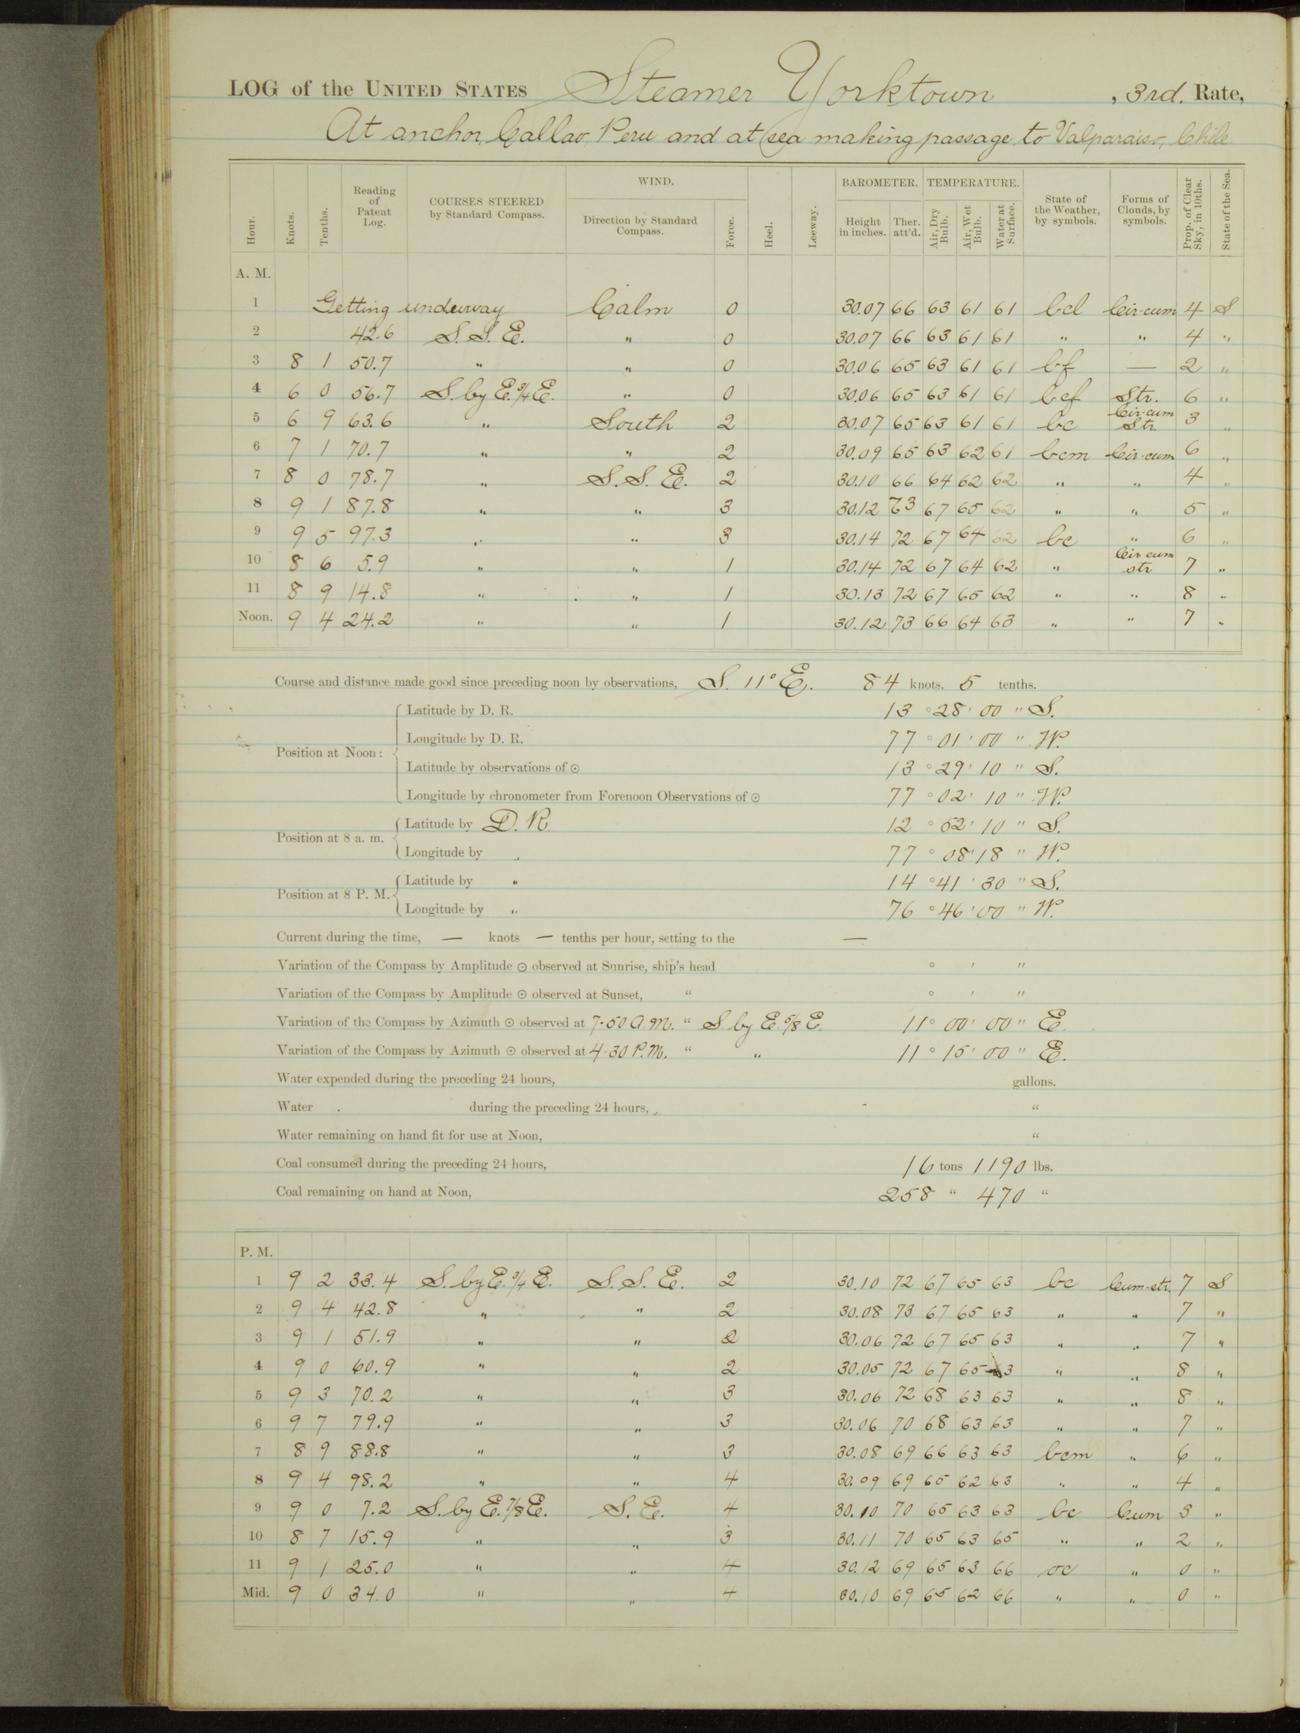 LOG of the UNITED STATES Steamer Yorktown, 3rd. Rate,
At anchor, Callao Peru and at sea making passage to Valparaiso, Chile
Hour. Knots. Tenths. Reading of Patent Log. COURSES STEERED by Standard Compass. WIND. Direction by Standard Compass. Force. Heel. Leeway. BAROMETER. Height in inches. Ther. att'd. TEMPERATURE. Air, Dry Bulb. Air, Wet Bulb. Water at Surface. State of the Weather, by symbols. Forms of Clouds, by symbols. Prop. of Clear Sky, in 10ths. State of the Sea.
A. M.
1 Getting underway Calm 0 30.07 66 63 61 61 bcl Cir-cum 4 S
2 42.6 S.S.E. " 0 30.07 66 63 61 61 " " 4 "
3 8 1 50.7 " " 0 30.06 65 63 61 61 bf — 2 "
4 6 0 56.7 S. by E. 3/4 E. " 0 30.06 65 63 61 61 bcf Str. 6 "
5 6 9 63.6 " South 2 30.07 65 63 61 61 bc Cir-cum Str 3 "
6 7 1 70.7 " " 2 30.09 65 63 62 61 bcm Cir-cum 6 "
7 8 0 78.7 " S.S.E. 2 30.10 66 64 62 62 " " 4 "
8 9 1 87.8 " " 3 30.12 73 67 65 62 " " 5 "
9 9 5 97.3 " " 3 30.14 72 67 64 62 bc " 6 "
10 8 6 5.9 " " 1 30.14 72 67 64 62 " Cir cum str 7 "
11 8 9 14.8 " " 1 30.13 72 67 65 62 " " 8 "
Noon. 9 4 24.2 " " 1 30.12 73 66 64 63 " " 7 "
Course and distance made good since preceding noon by observations, S. 11° E. 84 knots. 5 tenths.
Position at Noon:
Latitude by D. R. 13 ° 28 ' 00 " S.
Longitude by D. R. 77 ° 01 ' 00 " W.
Latitude by observations of ⊙ 13 ° 29 ' 10 " S.
Longitude by chronometer from Forenoon Observations of ⊙ 77 ° 02 ' 10 " W.
Position at 8 a. m.
Latitude by D. R. 12 ° 52 ' 10 " S.
Longitude by " 77 ° 08 ' 18 " W.
Position at 8 P. M.
Latitude by " 14 ° 41 ' 30 " S.
Longitude by " 76 ° 46 ' 00 " W.
Current during the time, — knots — tenths per hour, setting to the —
Variation of the Compass by Amplitude ⊙ observed at Sunrise, ship's head ° ' "
Variation of the Compass by Amplitude ⊙ observed at Sunset, " ° ' "
Variation of the Compass by Azimuth ⊙ observed at 7-50 A.M. " S. by E. 5/8 E. 11 ° 00 ' 00 " E.
Variation of the Compass by Azimuth ⊙ observed at 4-30 P.M. " " 11 ° 15 ' 00 " E.
Water expended during the preceding 24 hours, gallons.
Water during the preceding 24 hours, "
Water remaining on hand fit for use at Noon, "
Coal consumed during the preceding 24 hours, 16 tons 1190 lbs.
Coal remaining on hand at Noon, 258 " 470 "
P. M.
1 9 2 33.4 S. by E. 3/4 E. S.S.E. 2 30.10 72 67 65 63 bc Cum-str. 7 S
2 9 4 42.8 " " 2 30.08 73 67 65 63 " " 7 "
3 9 1 51.9 " " 2 30.06 72 67 65 63 " " 7 "
4 9 0 60.9 " " 2 30.05 72 67 65 63 " " 8 "
5 9 3 70.2 " " 3 30.06 72 68 63 63 " " 8 "
6 9 7 79.9 " " 3 30.06 70 68 63 63 " " 7 "
7 8 9 88.8 " " 3 30.08 69 66 63 63 bcm " 6 "
8 9 4 98.2 " " 4 30.09 69 65 62 63 " " 4 "
9 9 0 7.2 S. by E. 7/8 E. S.E. 4 30.10 70 65 63 63 bc Cum 3 "
10 8 7 15.9 " " 3 30.11 70 65 63 65 " " 2 "
11 9 1 25.0 " " 4 30.12 69 65 63 66 oc " 0 "
Mid. 9 0 34.0 " " 4 30.10 69 65 62 66 " " 0 "